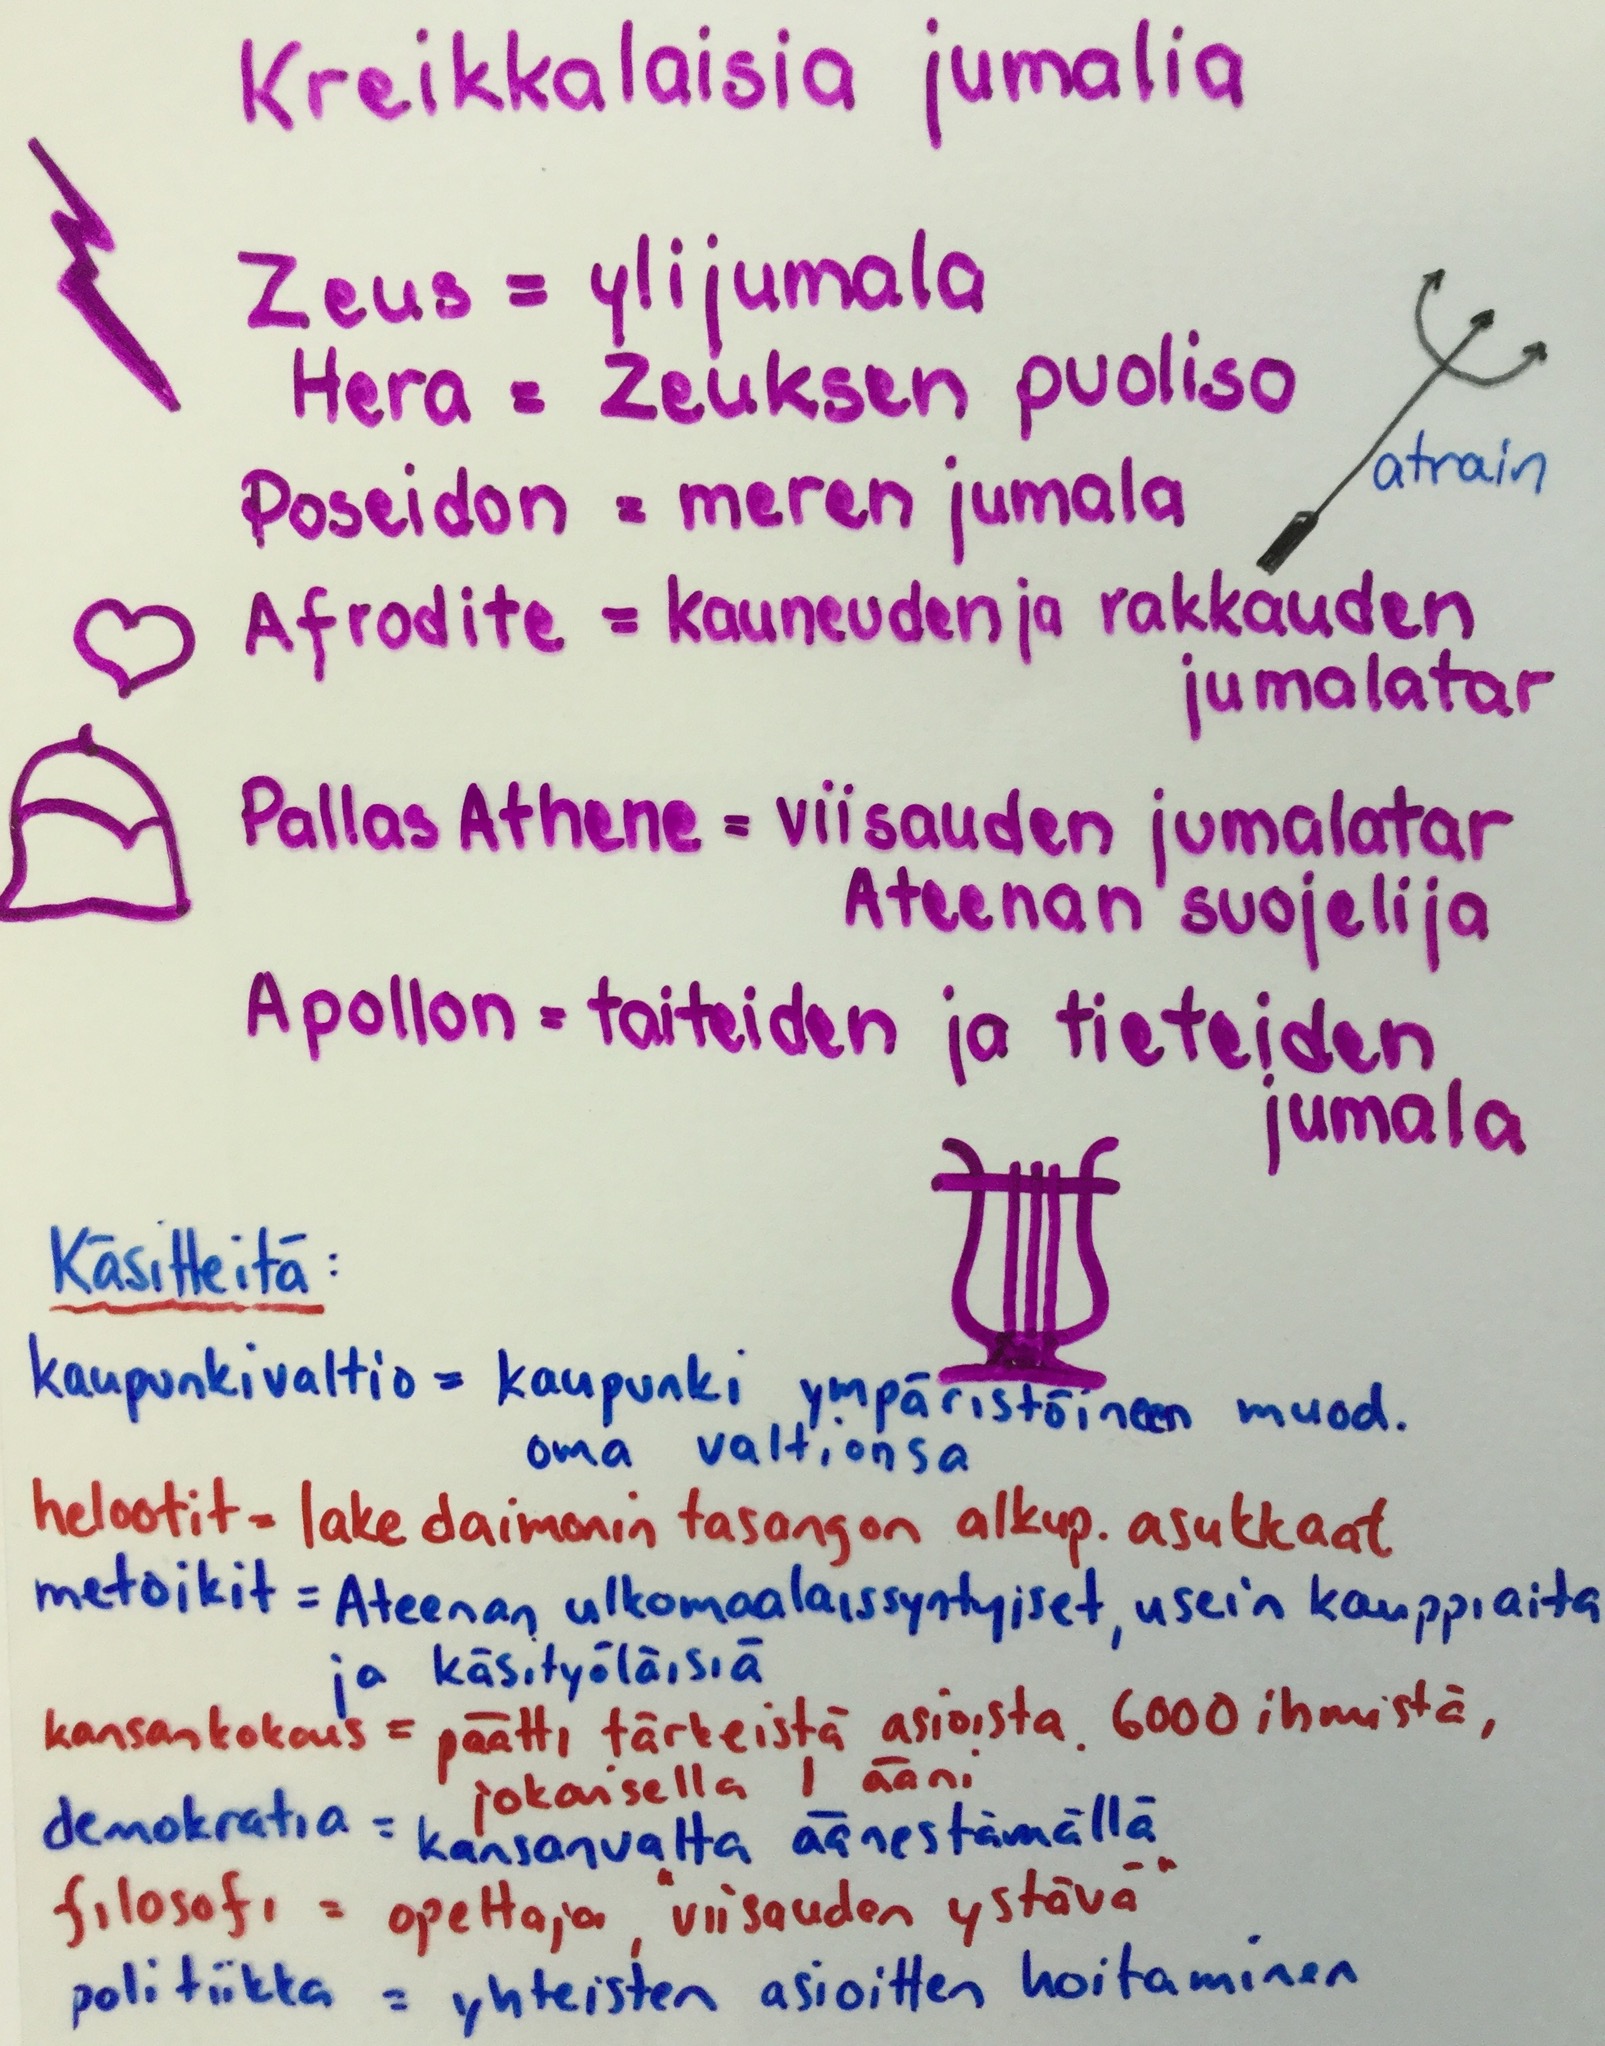 Kreikkalaisia jumalia
Zeus = ylijumala
Hera = Zeuksen puoliso
atrain
Poseidon = meren jumala
Afrodite = kauneuden ja rakkauden
jumalatar
Pallas Athene = viisauden jumalatar
Ateenan suojelija
Apollon = taiteiden ja tieteiden
jumala
Käsitteitä:
kaupunkivaltio = kaupunki ympäristöineen muod.
oma valtionsa
helootit = lake daimonin tasangon alkup. asukkaat
metoikit = Ateenan ulkomaalaissyntyiset, usein kauppiaita
ja käsityöläisiä
kansankokous = päätti tärkeistä asioista. 6000 ihmistä,
jokaisella 1 ääni
demokratia = kansanvalta äänestämällä
filosofi = opettaja, "viisauden ystävä"
politiikka = yhteisten asioitten hoitaminen